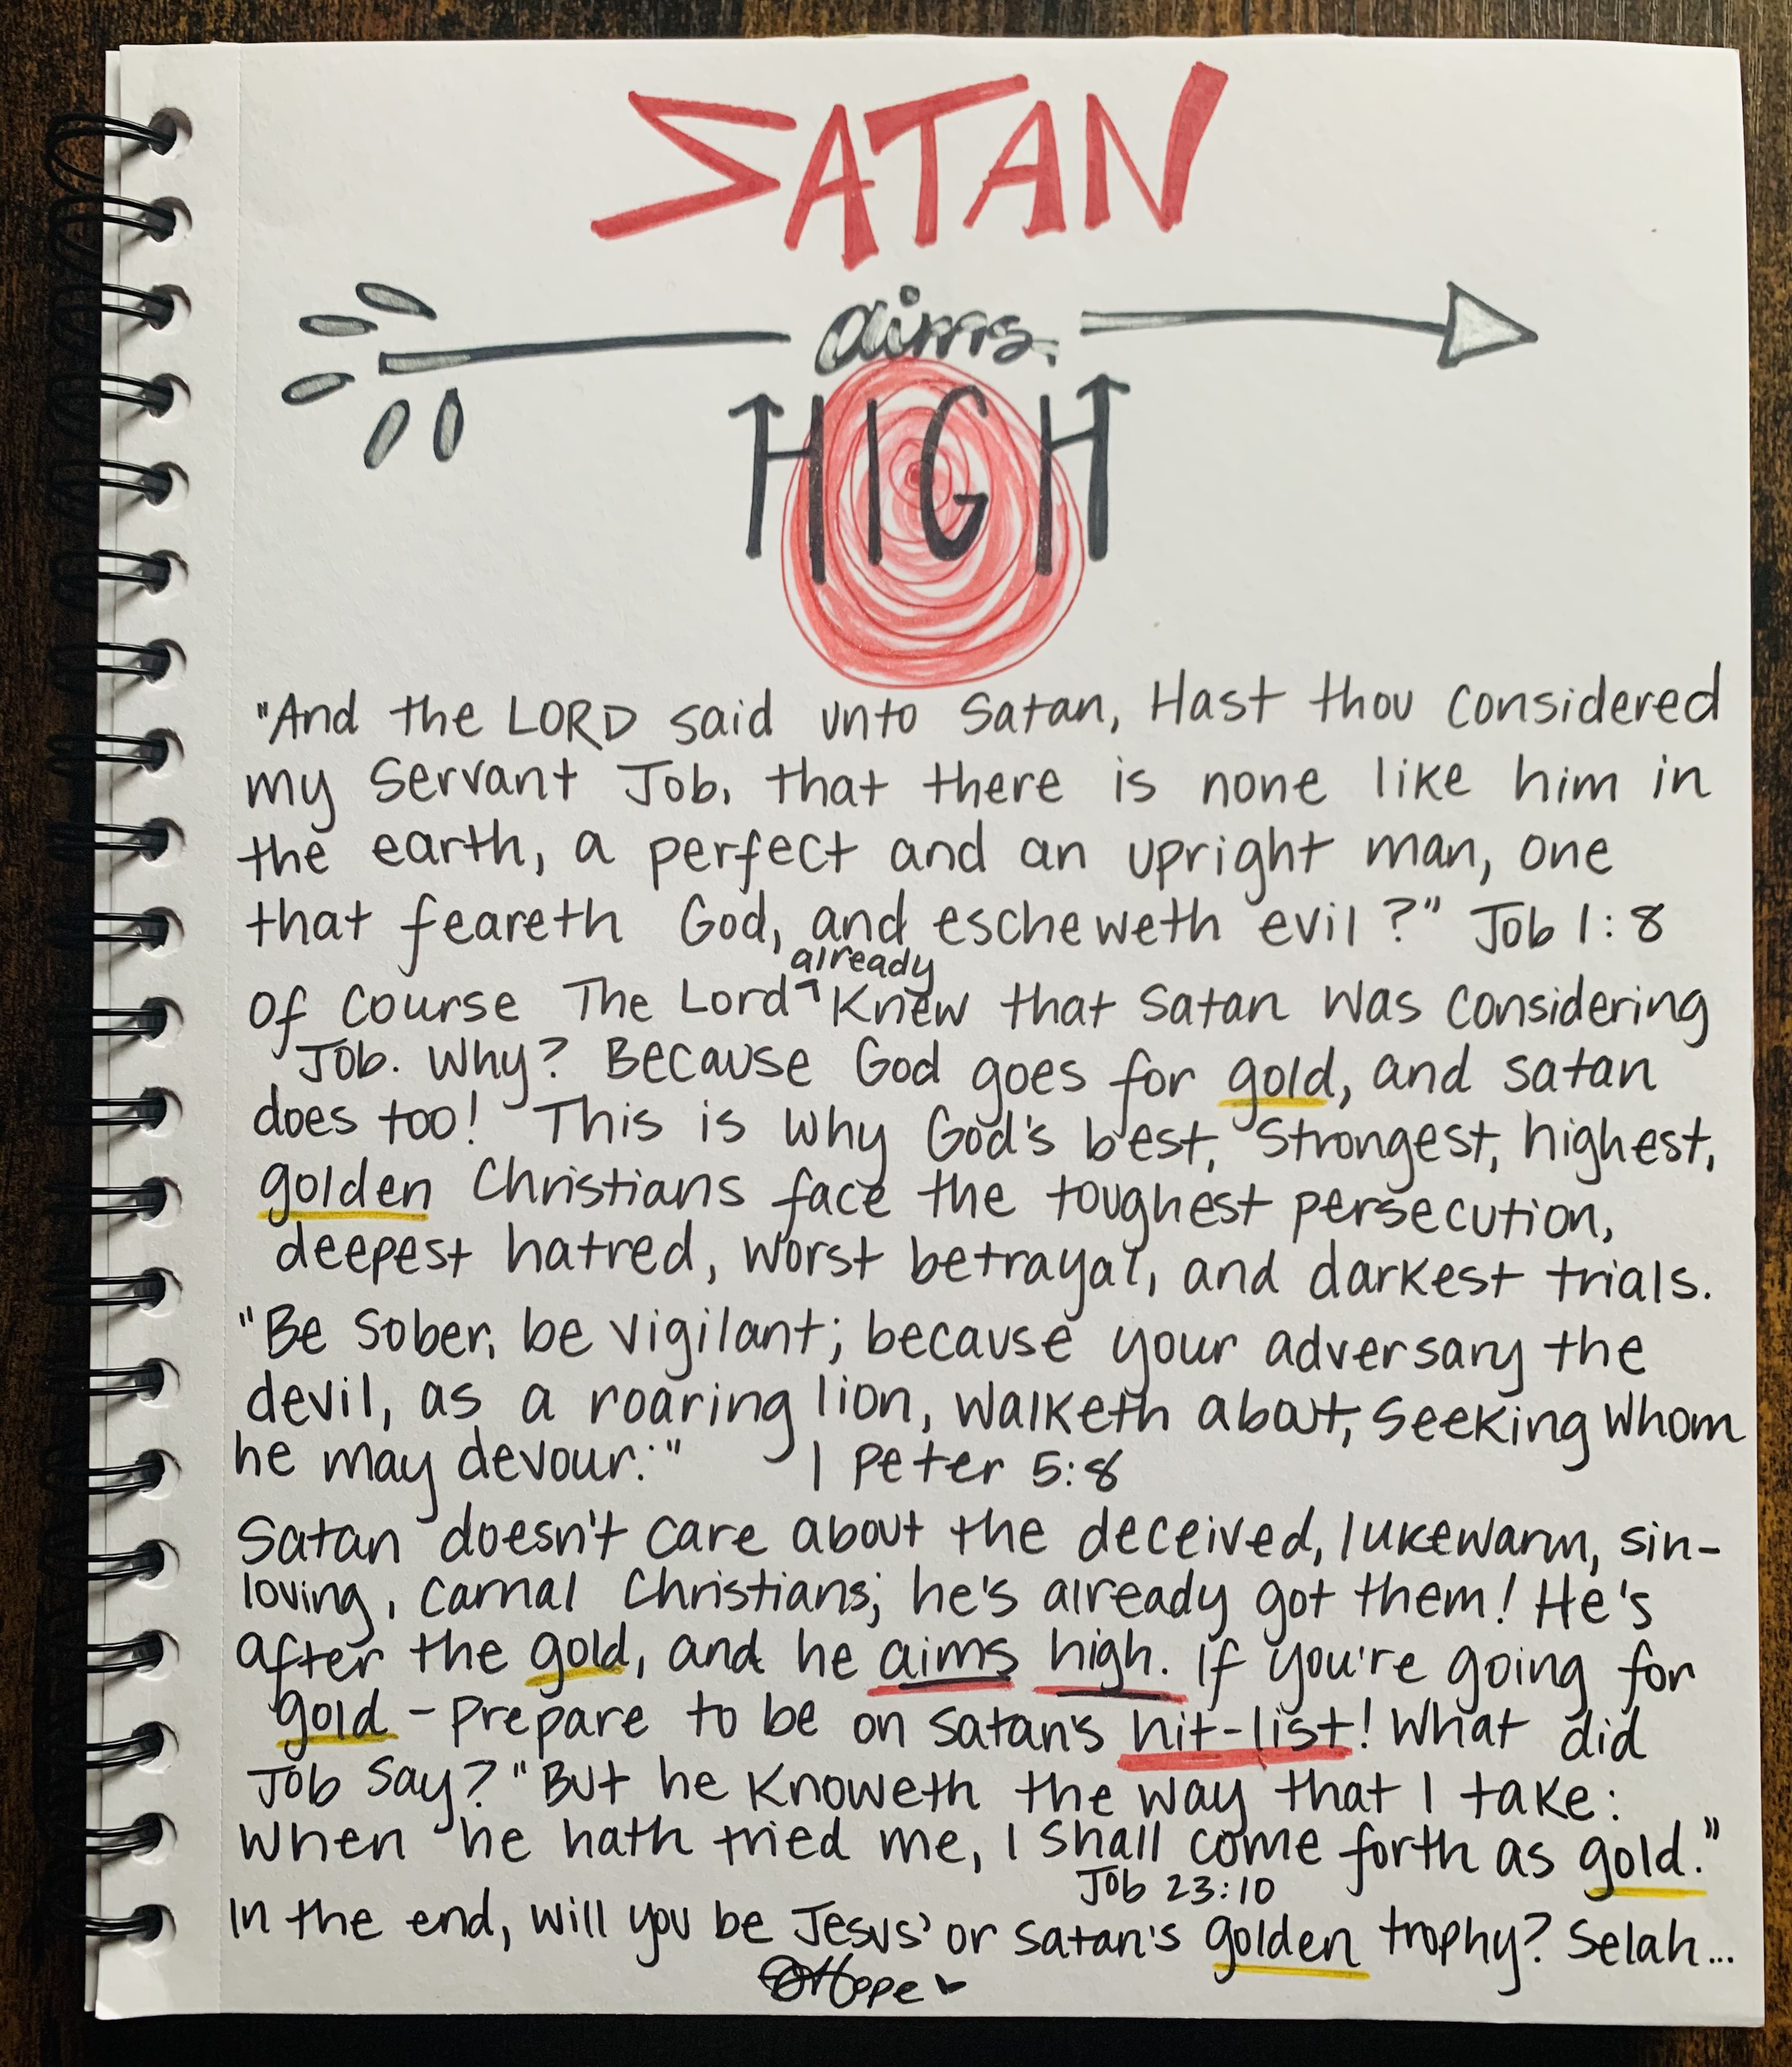 SATAN
aims
HIGH
"And the LORD said unto Satan, Hast thou considered
my servant Job, that there is none like him in
the earth, a perfect and an upright man, one
that feareth God, and escheweth evil?" Job 1:8
already
Of course The Lord knew that Satan was considering
Job. Why? Because God goes for gold, and satan
does too! This is why God's best, strongest, highest,
golden Christians face the toughest persecution,
deepest hatred, worst betrayal, and darkest trials.
"Be sober, be vigilant; because your adversary the
devil, as a roaring lion, walketh about, seeking whom
he may devour:" 1 Peter 5:8
Satan doesn't care about the deceived, lukewarm, sin-
loving, carnal Christians; he's already got them! He's
after the gold, and he aims high. If you're going for
gold - prepare to be on satan's hit-list! What did
Job say? "But he knoweth the way that I take:
when he hath tried me, I shall come forth as gold."
Job 23:10
In the end, will you be Jesus' or satan's golden trophy? Selah...
Hope